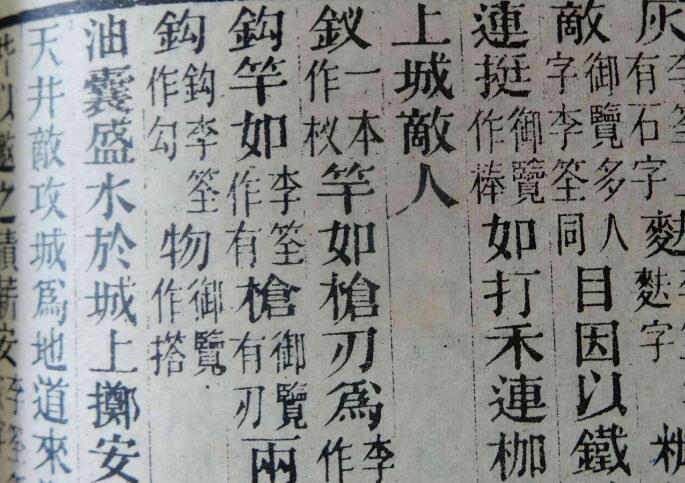 灰李筌上有石字
敵御覽多人字李筌同目因以鐵
連挺御覽作棒如打禾連枷
上城敵人
釵一本作杈竿如槍刃爲李作
鈎竿如李筌作有槍御覽有刃兩
鈎鈎李筌作勾物御覽作搭
油囊盛水於城上擲安
天井敵攻城爲地道來
以邀之積薪安李筌